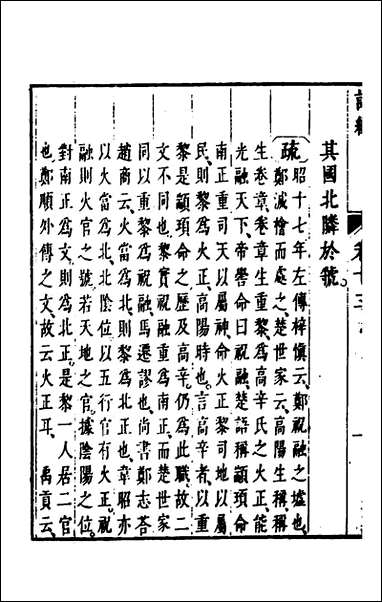 卷十三
其國北隣於虢。
疏 昭十七年左傳梓慎云、鄭祝融之墟也、
鄭滅檜而處之、楚世家云、高陽生稱、稱
生卷章、卷章生重黎、爲高辛氏之火正、能
光融天下、帝嚳命曰祝融、楚語稱顓頊命
南正重司天以屬神、命火正黎司地以屬
民、則黎爲火正、高陽時也、言高辛者、以重
黎是顓頊命之、歷及高辛、仍爲此職、故二
文不同也、黎實祝融、重爲南正、而楚世家
同以重黎爲祝融、馬遷謬也、尚書鄭志荅
趙商云、火當爲北、則黎爲北正也、韋昭亦
以火當爲北、北陰位、以五行官有火正、祝
融則火官之號、若天地之官、據陰陽之位、
對南正爲文、則爲北正、是黎一人居二官
也、鄭順外傳之文、故云火正耳、 禹貢云、